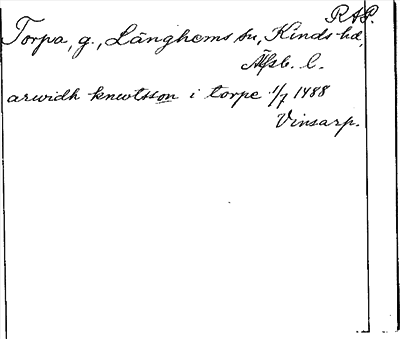 RAP.
Torpa, g., Länghems sn, Kinds hd,
Älfsb. l.
arwidh knwtsson i torpe 1/7 1488
Vinsarp.